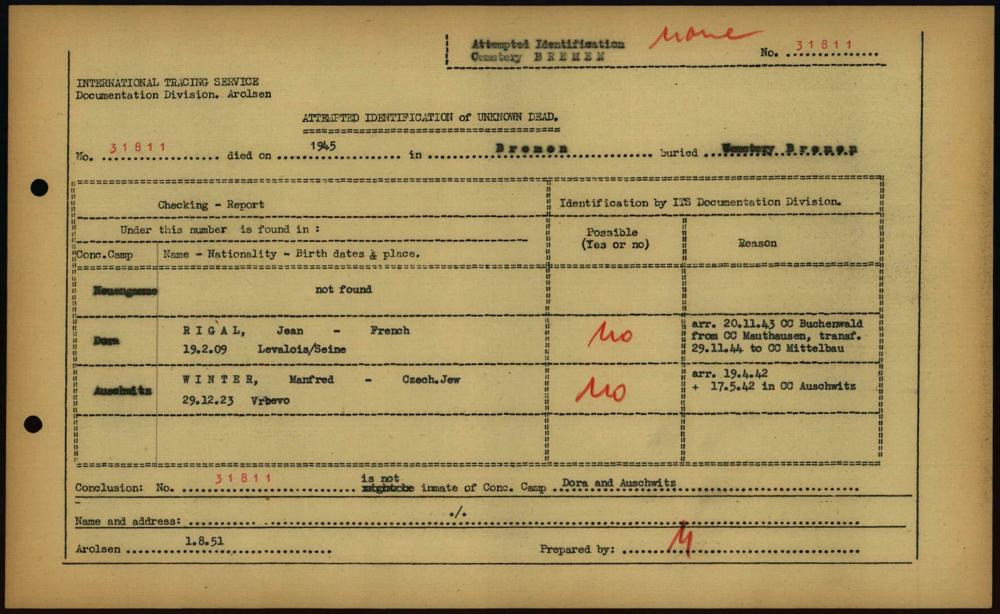 Attempted Identification
Cemetery B R E M E N
None
No. 31811
INTERNATIONAL TRACING SERVICE
Documentation Division. Arolsen
ATTEMPTED IDENTIFICATION of UNKNOWN DEAD.
No. 31811 died on 1945 in Bremen buried Cemetery Bremen
Checking - Report
Identification by ITS Documentation Division.
Under this number is found in :
Possible
(Yes or no)
Reason
Conc.Camp
Name - Nationality - Birth dates & place.
Neuengamme
not found
Dora
R I G A L, Jean - French
19.2.09 Levalois/Seine
No
arr. 20.11.43 CC Buchenwald
from CC Mauthausen, transf.
29.11.44 to CC Mittelbau
Auschwitz
W I N T E R, Manfred - Czech.Jew
29.12.23 Vrbevo
No
arr. 19.4.42
+ 17.5.42 in CC Auschwitz
is not
Conclusion: No. 31811 inmate of Conc. Camp Dora and Auschwitz
Name and address: ./.
Arolsen 1.8.51
Prepared by: